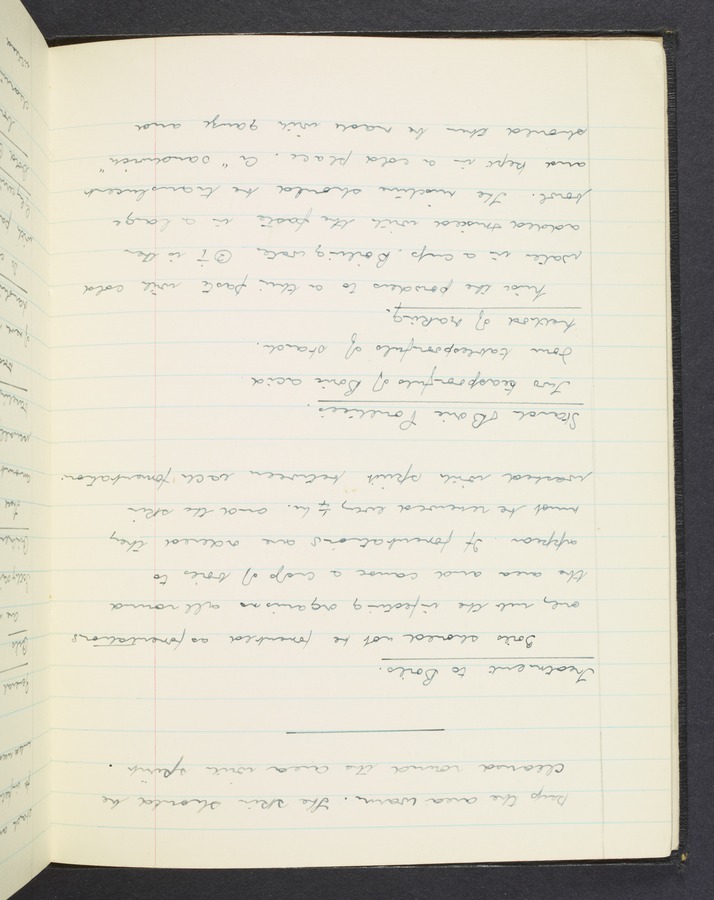 keep the area warm. The skin should be
cleansed round the area with spirit.
Treatment to Boils.
Boils should not be fomented as fomentations
only rub the infecting organisms all round
the area and cause a crop of boils to
appear. If fomentations are ordered they
must be renewed every ¼ hr. and the skin
washed with spirit between each fomentation.
Starch & Boric Poultices.
Two teaspoonfuls of Boric acid
Four tablespoonfuls of starch.
Method of Making.
Mix the powders to a thin paste with cold
water in a cup. Boiling water is then
added mixed with the paste in a large
bowl. The mixture should be translucent
and kept in a cold place. A "sandwich"
should then be made with gauze and